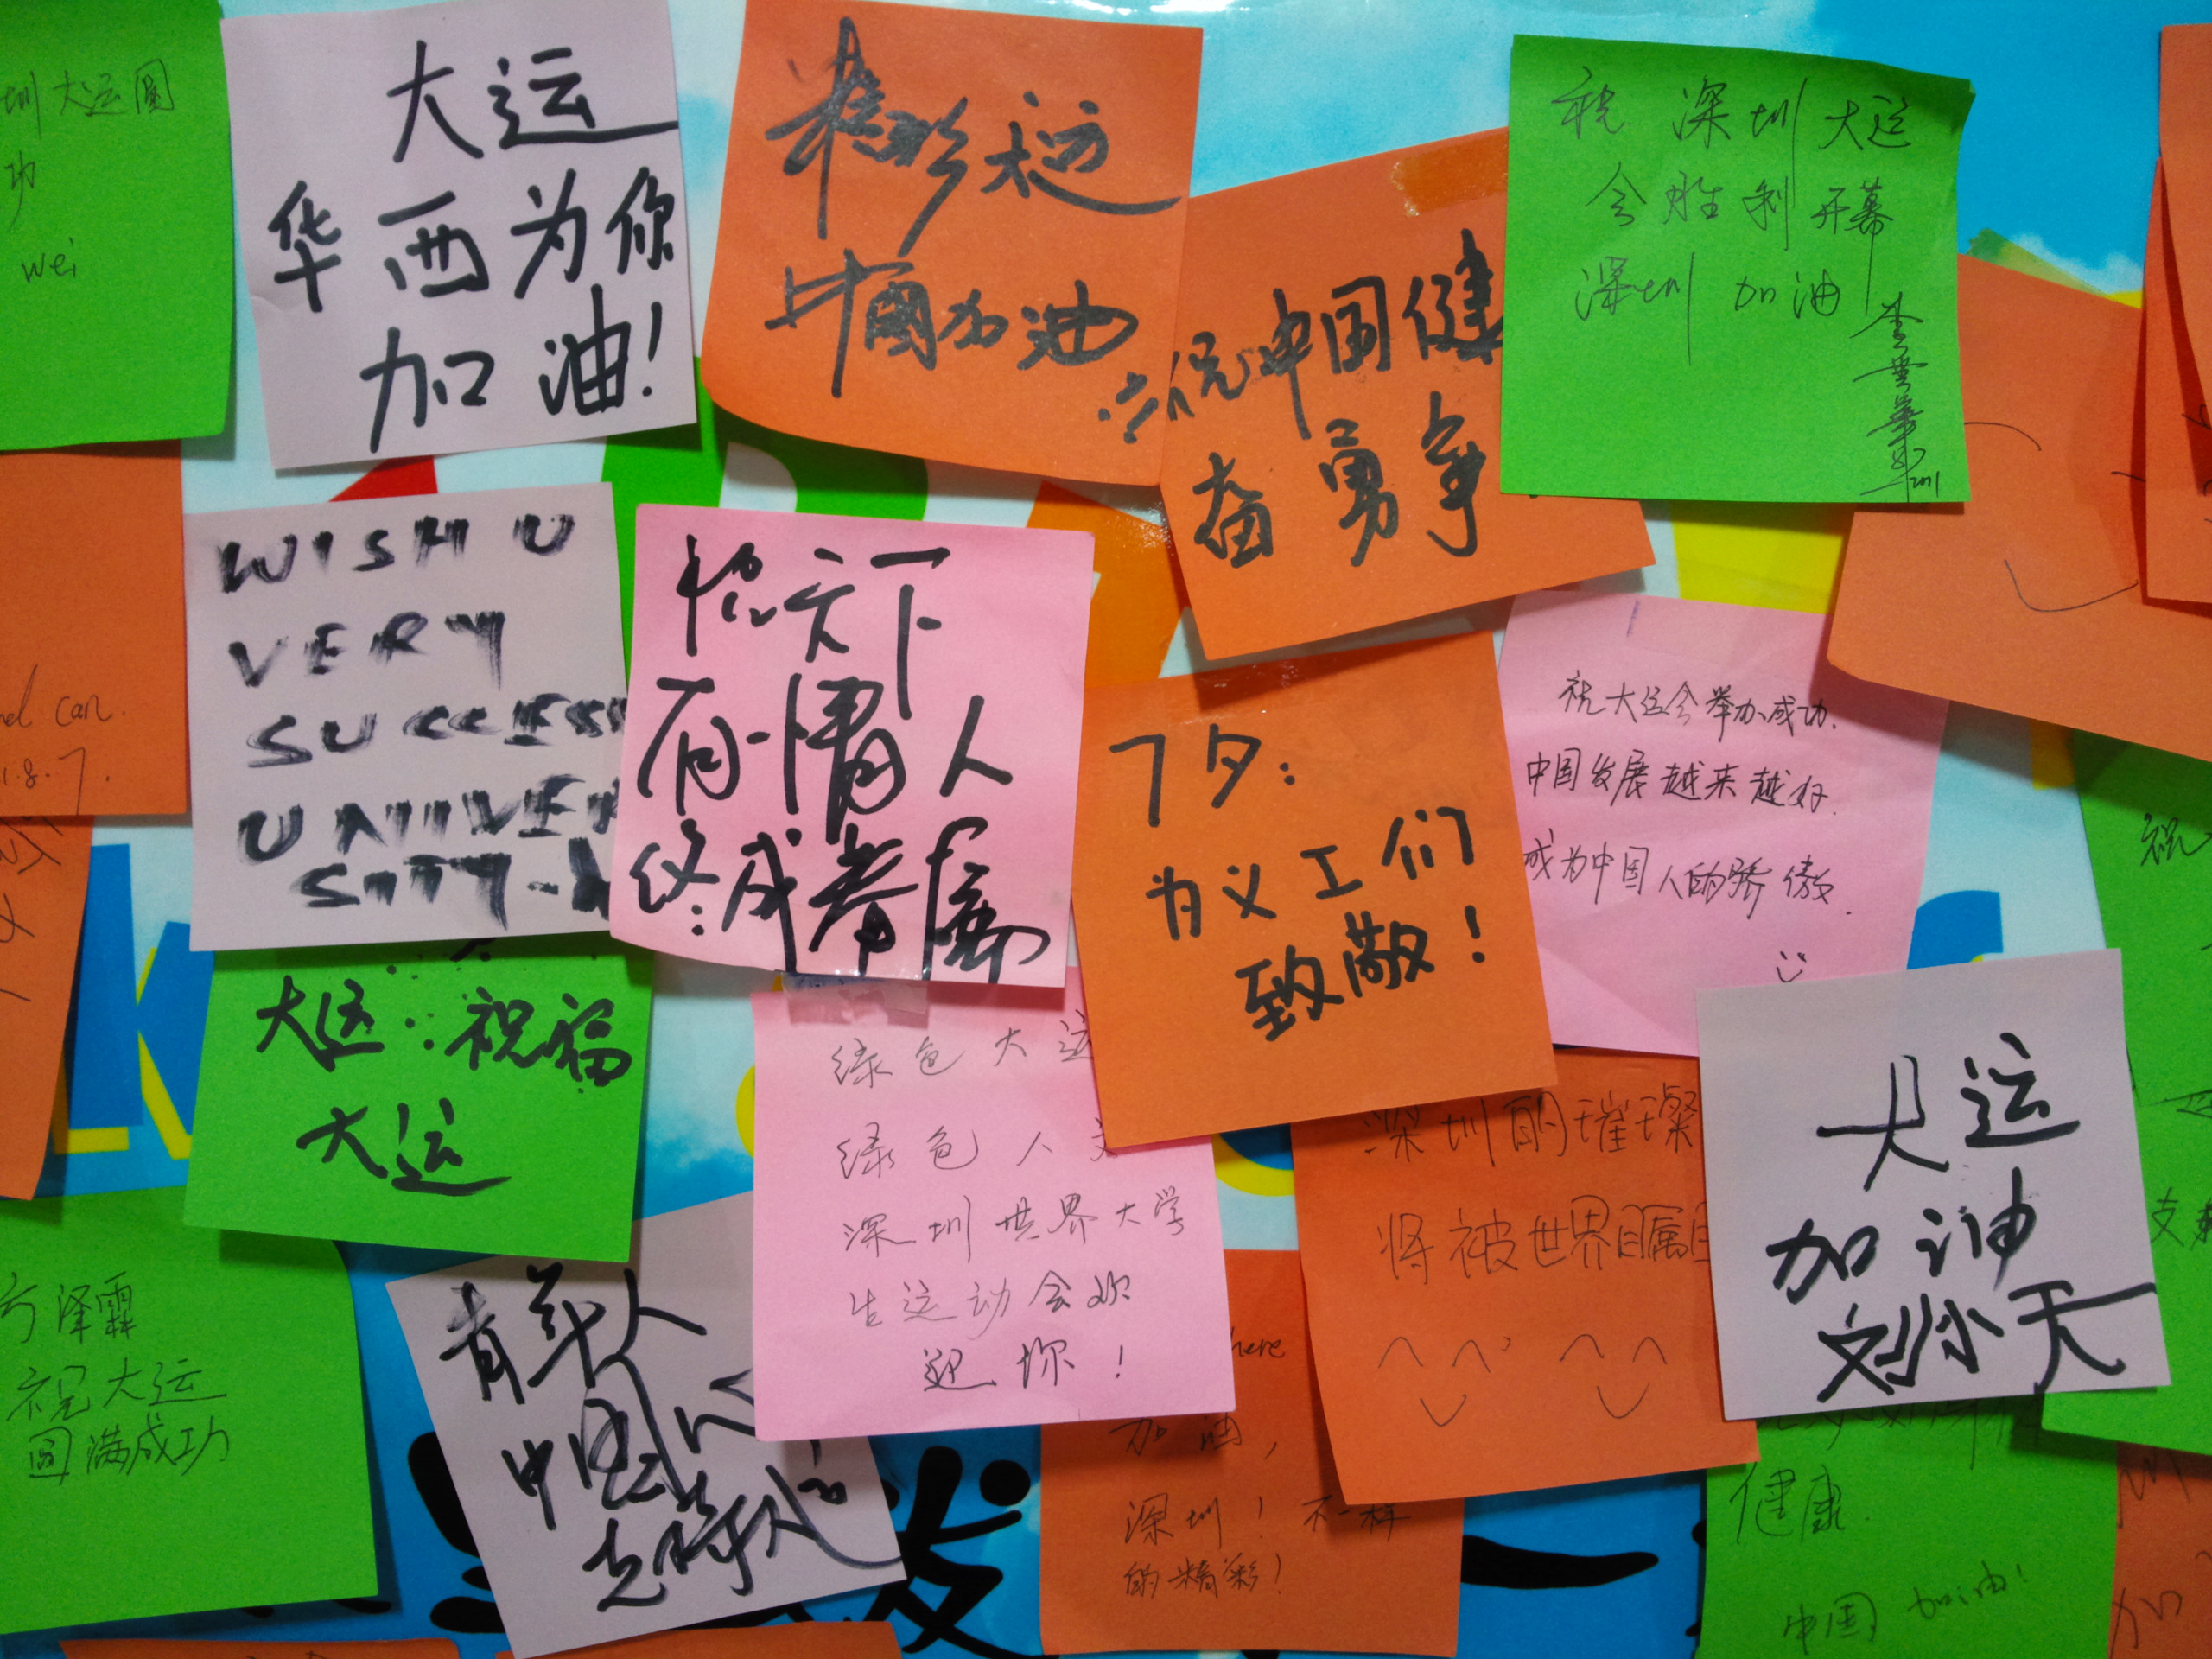 圳大运圆
功
wei
大运
华西为你
加油!
精彩大运
中国加油
祝中国健
奋勇争
祝深圳大运
会胜利开幕
深圳加油
WISH U
VERY
SUCCESS
UNIVER
SITY-
愿天下
有情人
终成眷属
7夕:
为义工们
致敬!
祝大运会举办成功.
中国发展越来越好.
成为中国人的骄傲.
can.
8.7.
大运:祝福
大运
绿色大运
绿色人文
深圳世界大学
生运动会欢
迎你!
深圳的璀璨
将被世界瞩目
大运
加油
刘小天
泽霖
祝大运
圆满成功
青年人
中国心
here
加油,
深圳!不一样
的精彩!
健康.
中国加油!
祝
支
加